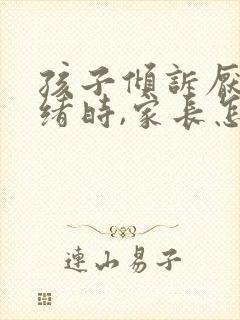 孩子傾訴厭
緒時,家長怎
連山易子